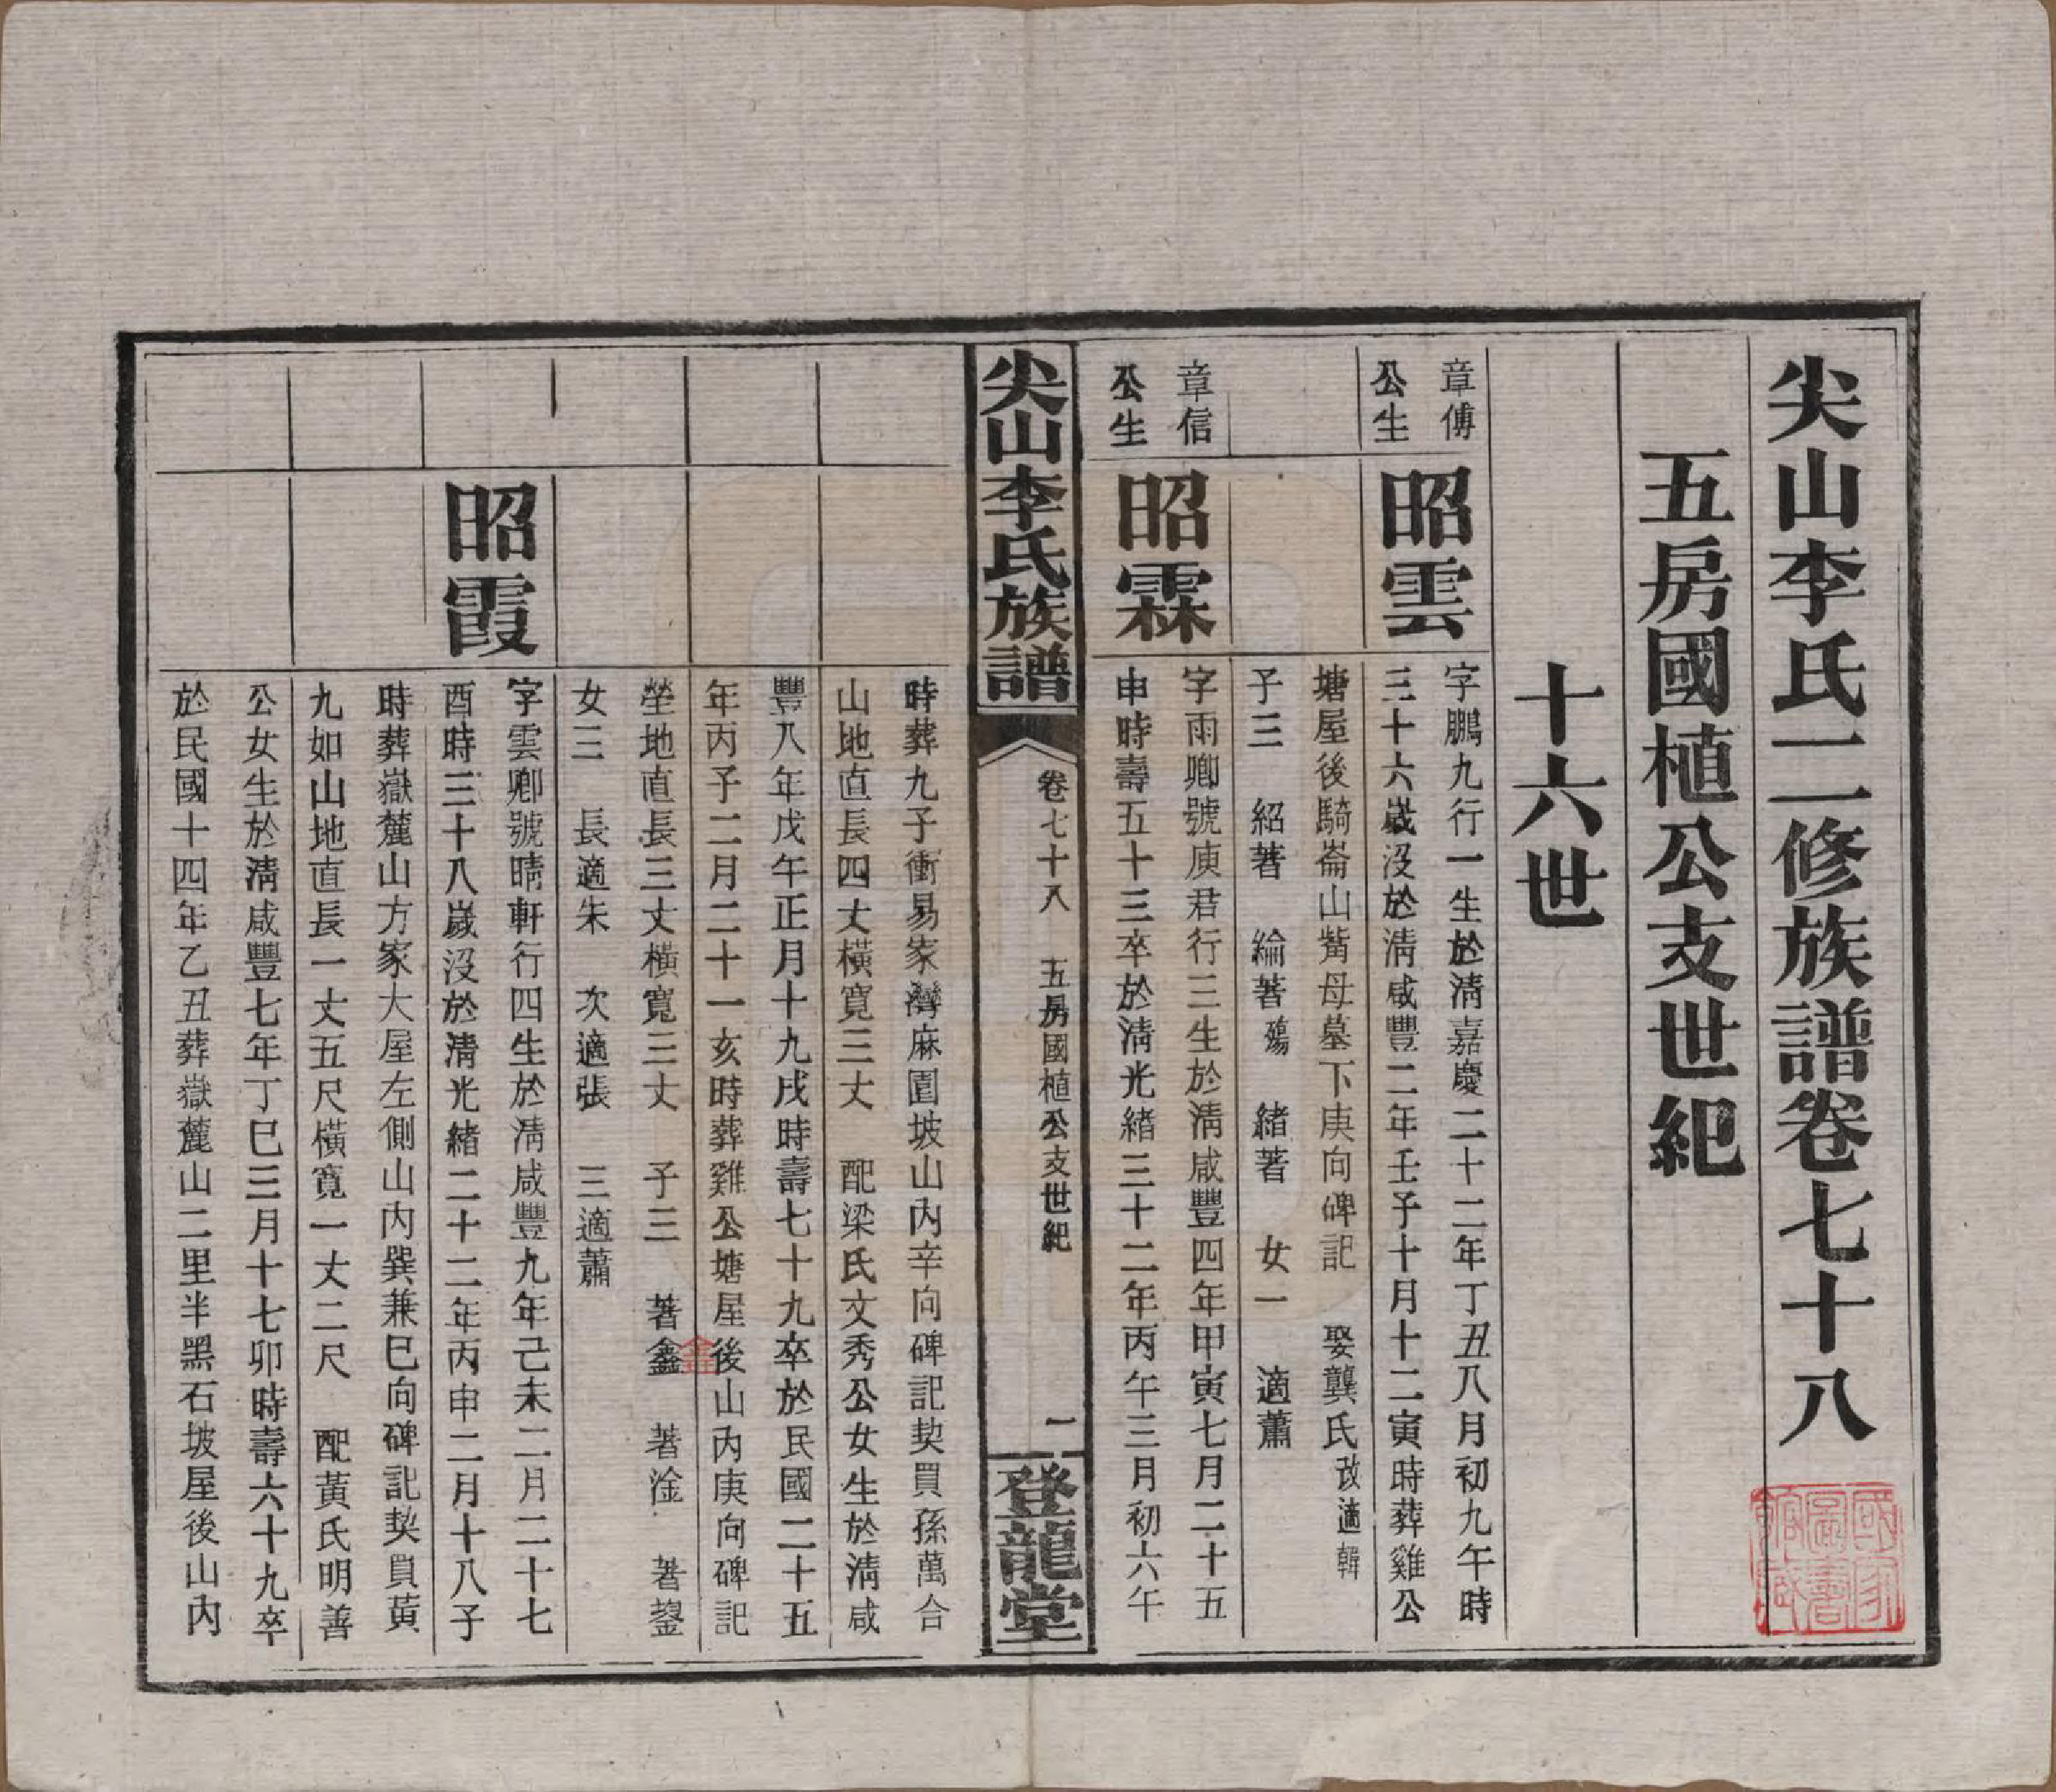 尖山李氏二修族譜卷七十八
五房國植公支世紀
十六世
章傅
公生
昭雲
字鵬九行一生於淸嘉慶二十二年丁丑八月初九午時
三十六歲沒於淸咸豐二年壬子十月十二寅時葬雞公
塘屋後騎崙山觜母墓下庚向碑記 娶龔氏改適韓
子三 紹著 綸著殤 緒著 女一 適蕭
章信
公生
昭霖
字雨卿號庚君行三生於淸咸豐四年甲寅七月二十五
申時壽五十三卒於淸光緖三十二年丙午三月初六午
尖山李氏族譜
卷七十八 五房國植公支世紀
一
登龍堂
時葬九子衝易家灣麻園坡山內辛向碑記契買孫萬合
山地直長四丈橫寬三丈 配梁氏文秀公女生於淸咸
豐八年戊午正月十九戌時壽七十九卒於民國二十五
年丙子二月二十一亥時葬雞公塘屋後山內庚向碑記
塋地直長三丈橫寬三丈 子三 著鑫 著淦 著鋆
女三 長適朱 次適張 三適蕭
昭霞
字雲卿號晴軒行四生於淸咸豐九年己未二月二十七
酉時三十八歲沒於淸光緖二十二年丙申二月十八子
時葬嶽麓山方家大屋左側山內巽兼巳向碑記契買黃
九如山地直長一丈五尺橫寬一丈二尺 配黃氏明善
公女生於淸咸豐七年丁巳三月十七卯時壽六十九卒
於民國十四年乙丑葬嶽麓山二里半黑石坡屋後山內